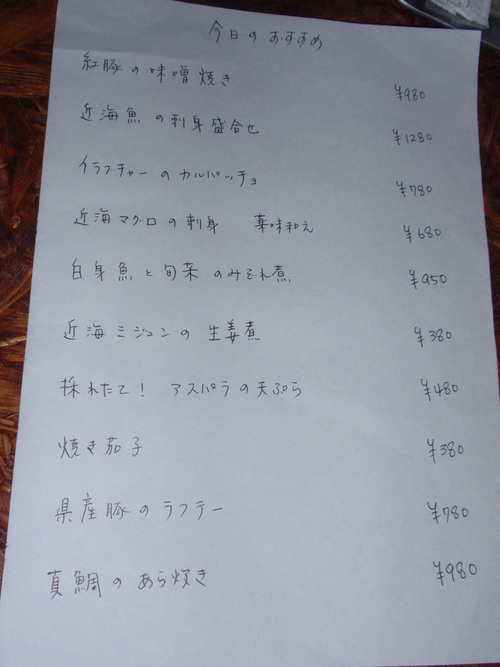 今日のおすすめ
紅豚の味噌焼き ¥980
近海魚の刺身盛合せ ¥1280
イラブチャーのカルパッチョ ¥780
近海マグロの刺身 薬味和え ¥680
白身魚と旬菜のみぞれ煮 ¥950
近海ミジュンの生姜煮 ¥380
採れたて! アスパラの天ぷら ¥480
焼き茄子 ¥380
県産豚のラフテー ¥780
真鯛のあら炊き ¥980